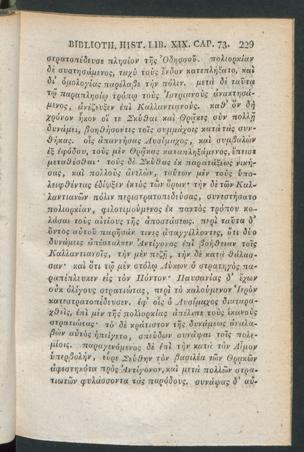 BIBLIOTH. HIST. LIB. XIX. CAP. 73. 229
στρατοπέδευσε πλησίον τῆς Ὀδησσοῦ. πολιορκίαν
δὲ συστησάμενος, ταχὺ τοὺς ἔνδον κατεπλήξατο, καὶ
δι' ὁμολογίας παρέλαβε τὴν πόλιν. μετὰ δὲ ταῦτα
τῷ παραπλησίῳ τρόπῳ τοὺς Ἰστριανοὺς ἀνακτησά-
μενος, ἀνέζευξεν ἐπὶ Καλλαντιανούς. καθ' ὃν δὴ
χρόνον ἧκον οἵ τε Σκύθαι καὶ Θρᾷκες σὺν πολλῇ
δυνάμει, βοηθήσοντες τοῖς συμμάχοις κατὰ τὰς συν-
θήκας. οἷς ἀπαντήσας Λυσίμαχος, καὶ συμβαλὼν
ἐξ ἐφόδου, τοὺς μὲν Θρᾷκας καταπληξάμενος, ἔπεισε
μεταθέσθαι· τοὺς δὲ Σκύθας ἐκ παρατάξεως νικήσ-
σας, καὶ πολλοὺς ἀνελὼν, τούτων μὲν τοὺς ὑπο-
λειφθέντας ἐδίωξεν ἐκτὸς τῶν ὅρων· τὴν δὲ τῶν Καλ-
λαντιανῶν πόλιν περιστρατοπεδεύσας, συνεστήσατο
πολιορκίαν, φιλοτιμούμενος ἐκ παντὸς τρόπου κο-
λάσαι τοὺς αἰτίους τῆς ἀποστάσεως. περὶ ταῦτα δ'
ὄντος αὐτοῦ παρῆσάν τινες ἀπαγγέλλοντες, ὅτι δύο
δυνάμεις ἀπέσταλκεν Ἀντίγονος ἐπὶ βοήθειαν τοῖς
Καλλαντιανοῖς, τὴν μὲν πεζῇ, τὴν δὲ κατὰ θάλασ-
σαν· καὶ ὅτι τῷ μὲν στόλῳ Λύκων ὁ στρατηγὸς πα-
ραπέπλευκεν εἰς τὸν Πόντον· Παυσανίας δ' ἔχων
οὐκ ὀλίγους στρατιώτας, περὶ τὸ καλούμενον Ἱερὸν
κατεστρατοπέδευσεν. ἐφ' οἷς ὁ Λυσίμαχος διαταρα-
χθεὶς, ἐπὶ μὲν τῆς πολιορκίας ἀπέλιπε τοὺς ἱκανοὺς
στρατιώτας· τὸ δὲ κράτιστον τῆς δυνάμεως ἀναλα-
βὼν αὐτὸς ἠπείγετο, σπεύδων συνάψαι τοῖς πολε-
μίοις. παραγενόμενος δὲ ἐπὶ τὴν κατὰ τὸν Αἷμον
ὑπερβολὴν, εὗρε Σεύθην τὸν βασιλέα τῶν Θρᾳκῶν
ἀφεστηκότα πρὸς Ἀντίγονον, καὶ μετὰ πολλῶν στρα-
τιωτῶν φυλάσσοντα τὰς παρόδους. συνάψας δ' αὐ-